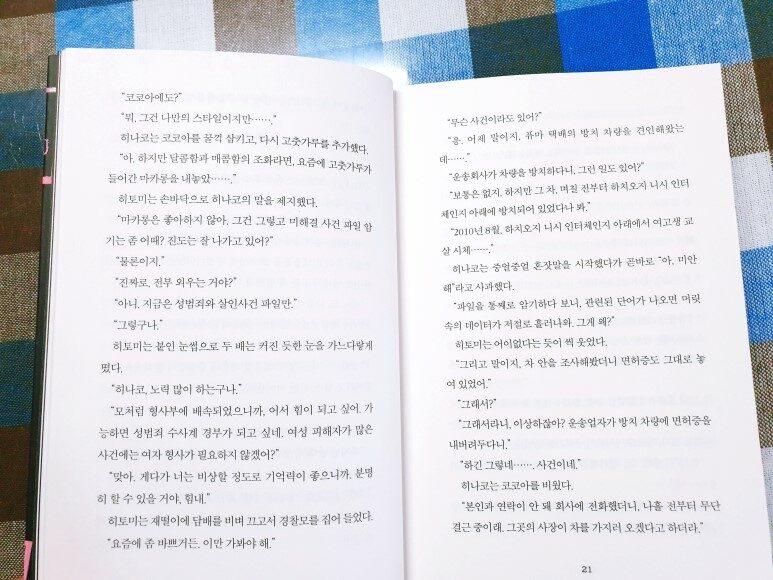 “코코아에도?”
“뭐, 그건 나만의 스타일이지만…….”
히나코는 코코아를 꿀꺽 삼키고, 다시 고춧가루를 추가했다.
“아, 하지만 달콤함과 매콤함의 조화라면, 요즘에 고춧가루가
들어간 마카롱을 내놓았…….”
히토미는 손바닥으로 히나코의 말을 제지했다.
“마카롱은 좋아하지 않아. 그건 그렇고 미해결 사건 파일 암
기는 좀 어때? 진도는 잘 나가고 있어?”
“물론이지.”
“진짜로, 전부 외우는 거야?”
“아니. 지금은 성범죄와 살인사건 파일만.”
“그렇구나.”
히토미는 붙인 눈썹으로 두 배는 커진 듯한 눈을 가느다랗게
떴다.
“히나코, 노력 많이 하는구나.”
“모처럼 형사부에 배속되었으니까, 어서 힘이 되고 싶어. 가
능하면 성범죄 수사계 경부가 되고 싶네. 여성 피해자가 많은
사건에는 여자 형사가 필요하지 않겠어?”
“맞아. 게다가 너는 비상할 정도로 기억력이 좋으니까. 분명
히 할 수 있을 거야, 힘내.”
히토미는 재떨이에 담배를 비벼 끄고서 경찰모를 집어 들었다.
“요즘에 좀 바쁘거든. 이만 가봐야 해.”
“무슨 사건이라도 있어?”
“응. 어제 말이지, 퓨마 택배의 방치 차량을 견인해왔는
데…….”
“운송회사가 차량을 방치하다니, 그런 일도 있어?”
“보통은 없지. 하지만 그 차, 며칠 전부터 하치오지 니시 인터
체인지 아래에 방치되어 있었다나 봐.”
“2010년 8월, 하치오지 니시 인터체인지 아래에서 여고생 교
살 시체…….”
히나코는 중얼중얼 혼잣말을 시작했다가 곧바로 “아, 미안
해”라고 사과했다.
“파일을 통째로 암기하다 보니, 관련된 단어가 나오면 머릿
속의 데이터가 저절로 흘러나와. 그게 왜?”
히토미는 어이없다는 듯이 씩 웃었다.
“그리고 말이지, 차 안을 조사해봤더니 면허증도 그대로 놓
여 있었어.”
“그래서?”
“그래서라니, 이상하잖아? 운송업자가 방치 차량에 면허증을
내버려두다니.”
“하긴 그렇네……, 사건이네.”
히나코는 코코아를 비웠다.
“본인과 연락이 안 돼 회사에 전화했더니, 나흘 전부터 무단
결근 중이래. 그곳의 사장이 차를 가지러 오겠다고 하더라.”
21